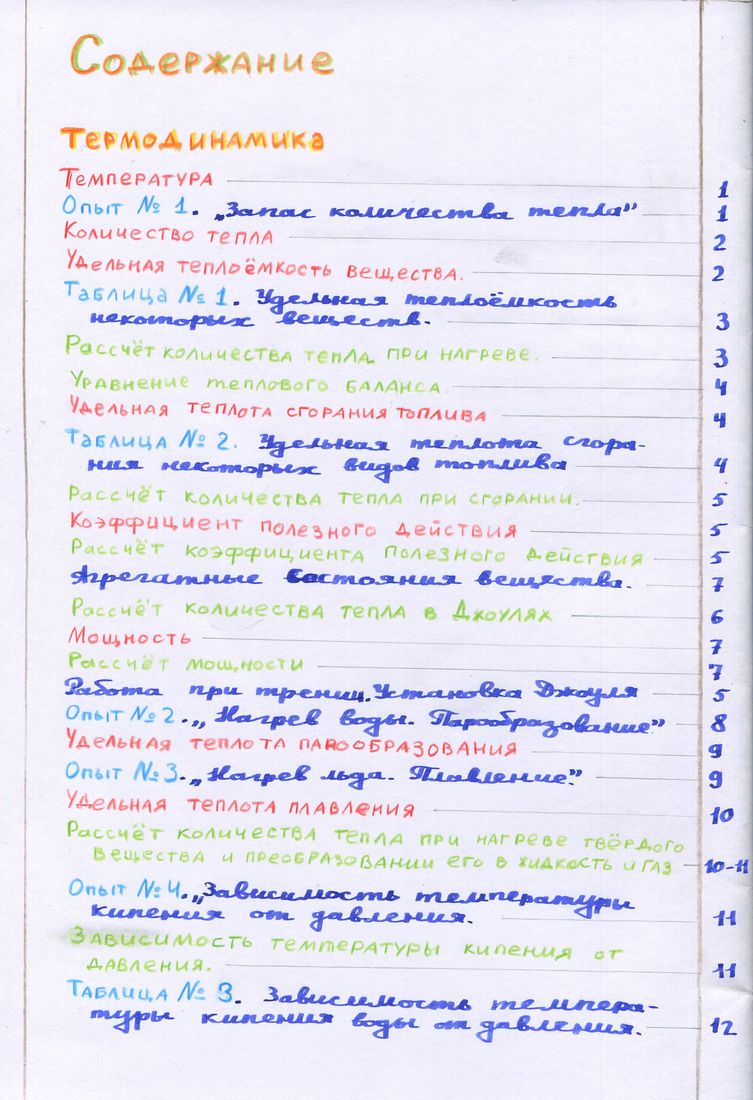 Содержание
Термодинамика
Температура 1
Опыт № 1. „Запас количества тепла” 1
Количество тепла 2
Удельная теплоёмкость вещества. 2
Таблица № 1. Удельная теплоёмкость
некоторых веществ. 3
Рассчёт количества тепла при нагреве. 3
Уравнение теплового баланса. 4
Удельная теплота сгорания топлива 4
Таблица № 2. Удельная теплота сгора-
ния некоторых видов топлива 4
Рассчёт количества тепла при сгорании. 5
Коэффициент полезного действия 5
Рассчёт коэффициента полезного действия 5
Агрегатные состояния вещества. 7
Рассчёт количества тепла в Джоулях 6
Мощность 7
Рассчёт мощности 7
Работа при трении. Установка Джоуля 5
Опыт № 2. „Нагрев воды. Парообразование” 8
Удельная теплота парообразования 9
Опыт № 3. „Нагрев льда. Плавление”. 9
Удельная теплота плавления 10
Рассчёт количества тепла при нагреве твёрдого
вещества и преобразовании его в жидкость и газ 10-11
Опыт № 4. „Зависимость температуры
кипения от давления. 11
Зависимость температуры кипения от
давления. 11
Таблица № 3. Зависимость темпера-
туры кипения воды от давления. 12